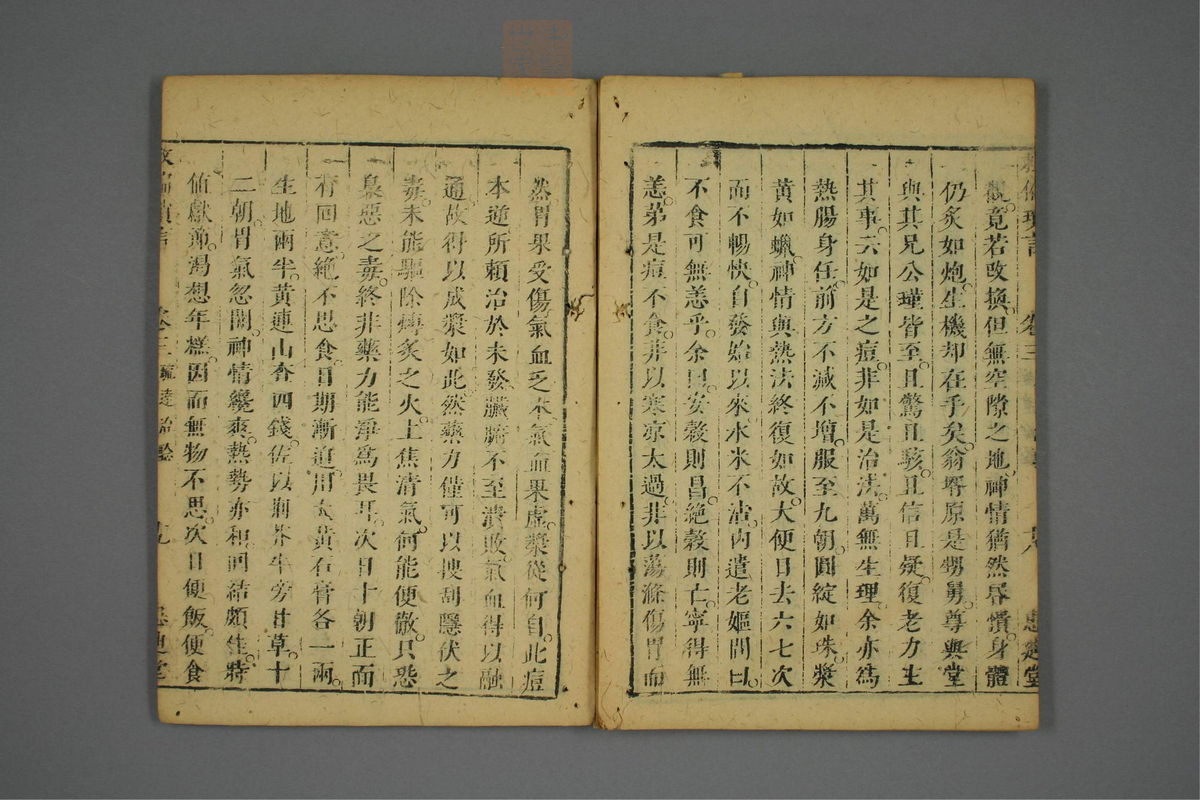 觀竟若改換但無空隙之地神情猶然昏憒身體
仍炙如炮生機却在乎矣翁壻原是甥舅尊輿堂
與其兄公瑾皆至且驚且駭且信且疑復老力主
其事六如是之痘非如是治法萬無生理余亦爲
熱腸身任前方不減不增服至九朝圓綻如珠漿
黃如蠟神情與熱法終復如故大便日去六七次
而不暢快自發始以來水米不沾內遣老嫗問曰
不食可無恙乎余曰安穀則昌絶穀則亡寧得無
恙弟是痘不食非以寒凉太過非以蕩滌傷胃而
然胃果受傷氣血乏本氣血果虛漿從何自此痘
本逆所賴治於未發臟腑不至潰敗氣血得以融
通故得以成漿如此然藥力僅可以搜刮隱伏之
毒未能驅除燔炙之火上焦清氣何能便散只恐
梟惡之毒終非藥力能淨爲畏耳次日十朝正面
有回意絶不思食日期漸迫用大黃石膏各一兩
生地兩半黃連山查四錢佐以荆芥牛蒡甘草十
二朝胃氣忽開神情纔爽熱勢亦和回結頗佳時
值獻節渴想年糕因而無物不思次日便飯便食
卷三
十九